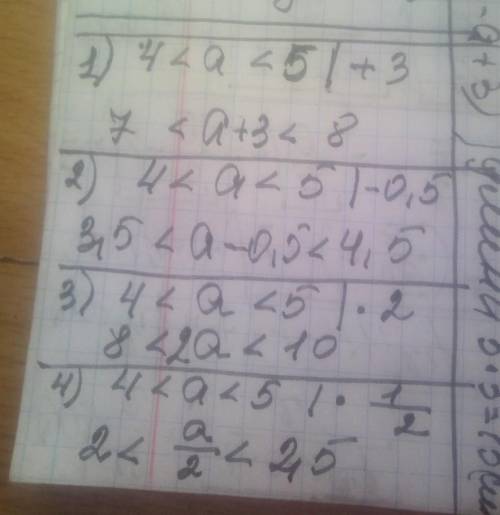 1) 4 < a < 5 | + 3
7 < a+3 < 8
2) 4 < a < 5 | -0,5
3,5 < a - 0,5 < 4,5
3) 4 < a < 5 | · 2
8 < 2a < 10
4) 4 < a < 5 | · 1/2
2 < a/2 < 2,5